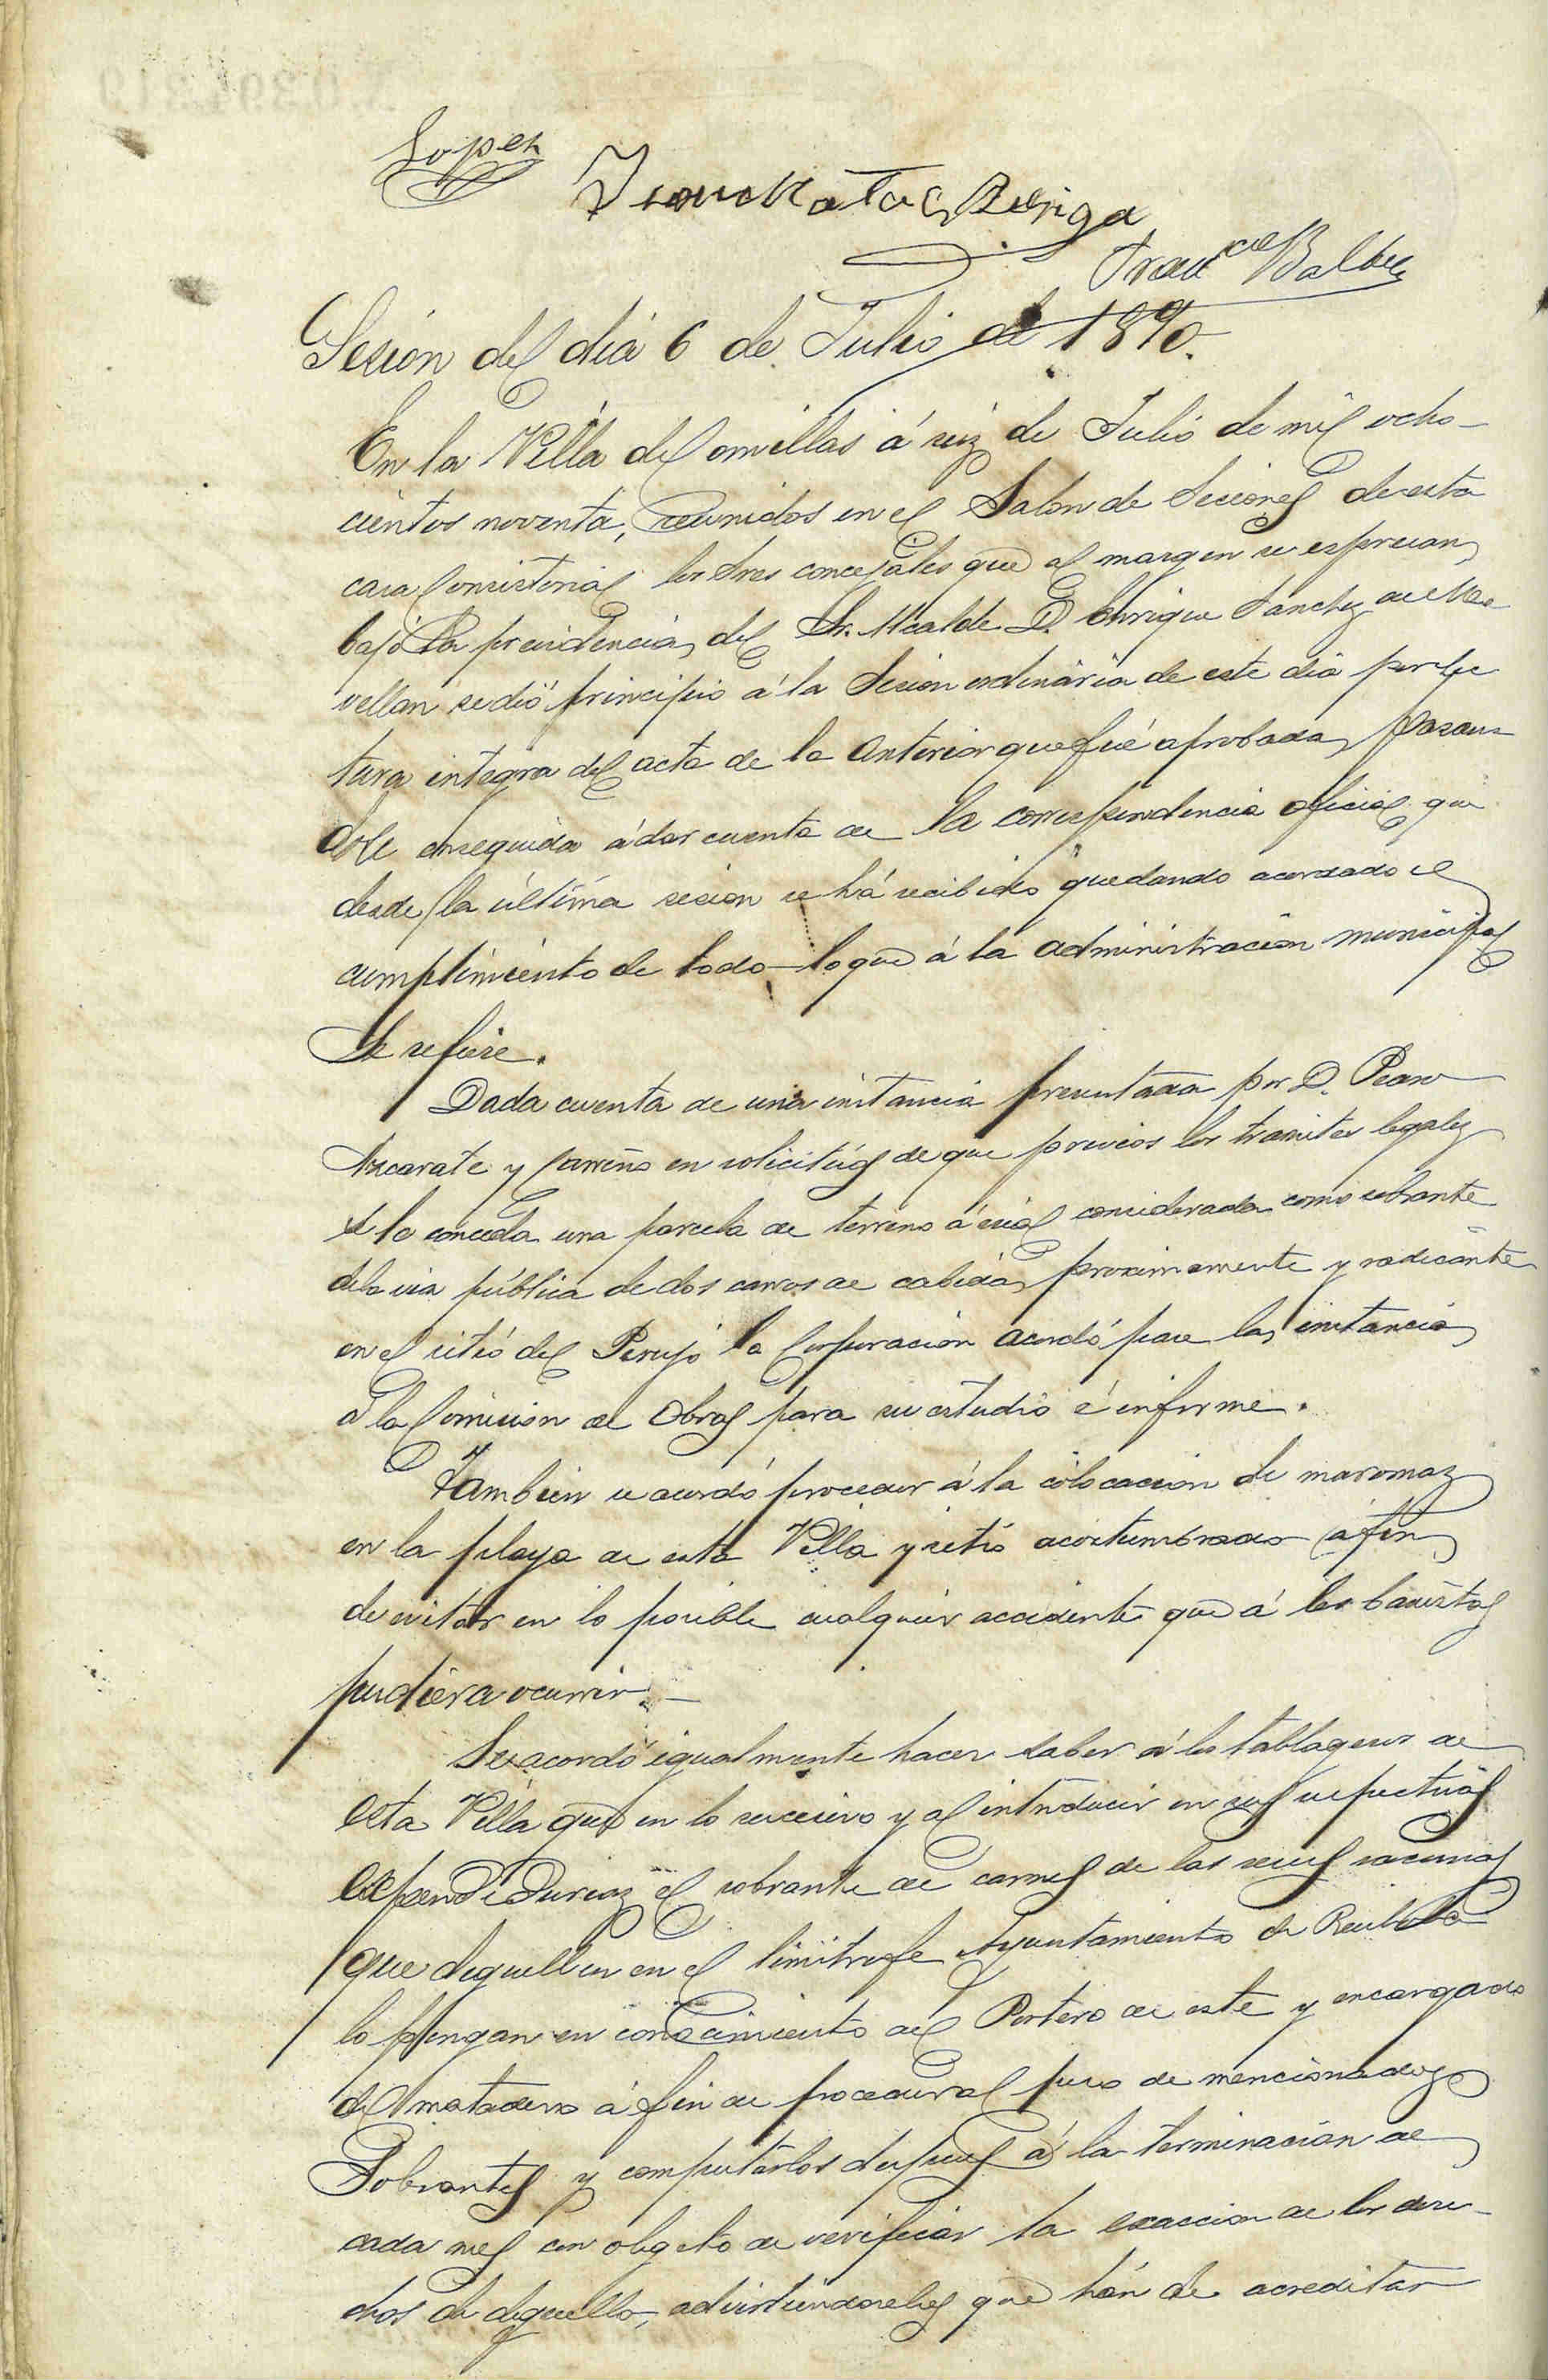 Lopez
Franco Balbás
Sesión del dia 6 de Julio de 1890.
En la Villa de Comillas á seis de Julio de mil ocho-
cientos noventa, reunidos en el Salon de Sesiones de esta
casa Consistorial los Sres concejales que al margen se espresan,
bajo la presidencia, del Sr. Alcalde D. Enrique Sanchez de Mo
vellan se dió principio á la Sesion ordinaria de este dia por lec
tura integra del acta de la anterior que fué aprobada, pasan-
dose enseguida á dar cuenta de la correspondencia oficial que
desde la última sesion se há recibido quedando acordado el
cumplimiento de todo lo que á la administración municipal
se refiere.
Dada cuenta de una instancia presentada por D. Pedro
Azcarate y Carreño en solicitud de que previos los tramites legales
se le conceda una parcela de terreno á erial considerada como sobrante
de la via pública de dos carros de cabida, proximamente y radicante
en el sitio del Perujo la Corporación acordó pase la instancia
á la Comision de Obras para su estudio é informe.
Tambien se acordó proceder á la colocacion de maromas
en la playa de esta Villa y sitio acostumbrado á fin
de evitar en lo posible cualquier accidente que á los bañistas
pudiera ocurrir.
Se acordó igualmente hacer saber á los tablageros de
esta Villa que en lo sucesivo y al introducir en sus respectivas
espendedurias el sobrante de carnes de las reses vacunas
que deguellen en el limitrofe Ayuntamiento de Ruiloba
lo pongan en conocimiento del Portero de este y encargado
del matadero á fin de proceder al peso de mencionados
Sobrantes y computarlos despues á la terminación de
cada mes con objeto de verificar la exaccion de los dere-
chos de deguello, advirtiendoseles que hán de acreditar